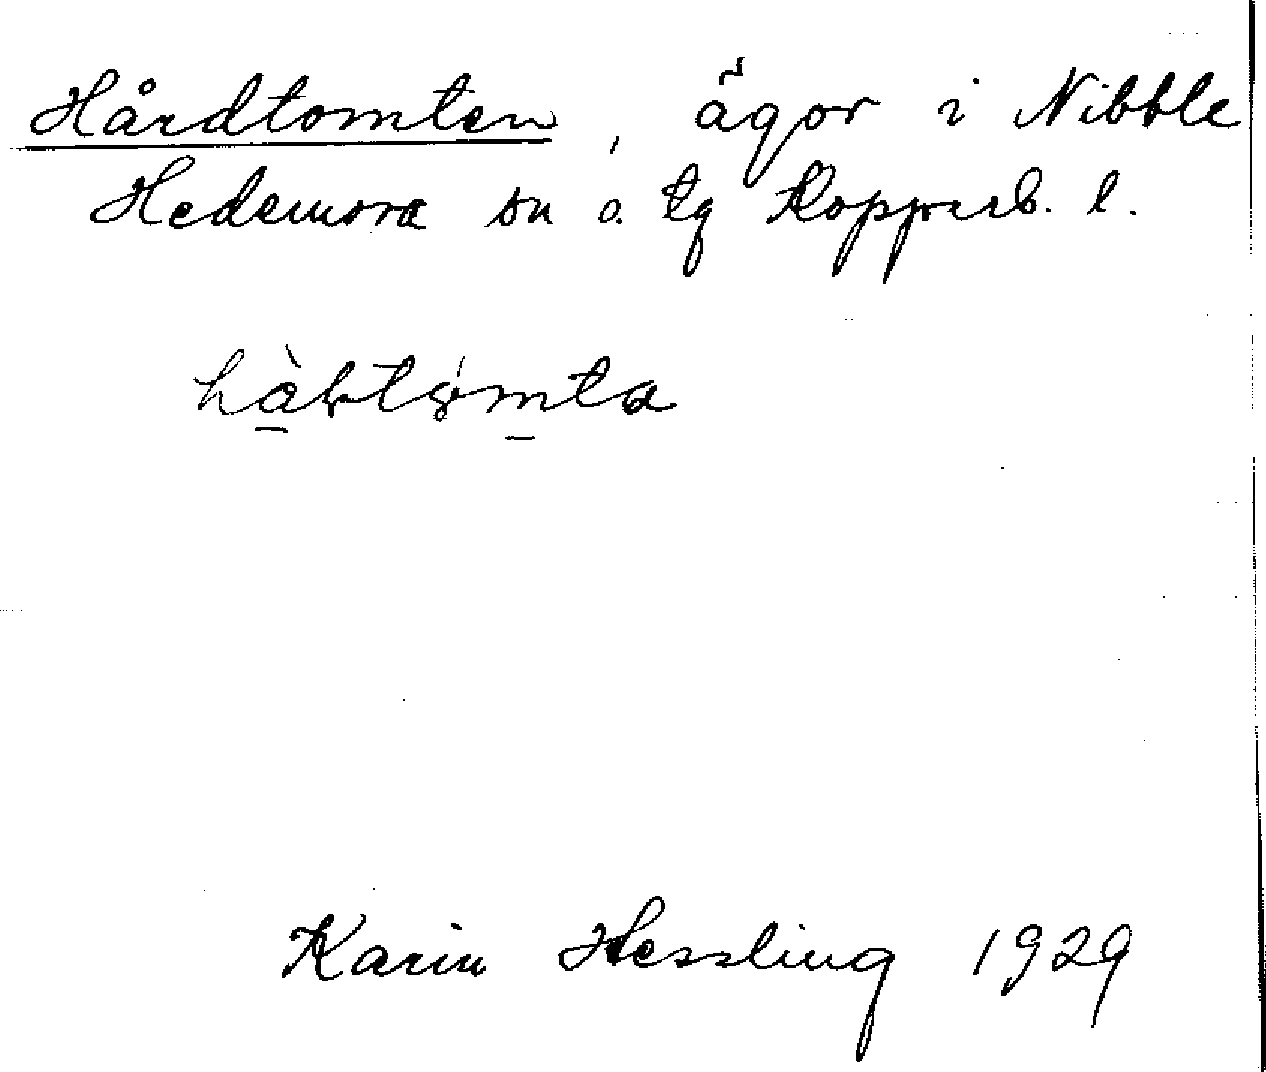 Hårdtomten, ägor i Nibble
Hedemora sn o. tg Kopparb. l.
Karin Hessling 1929